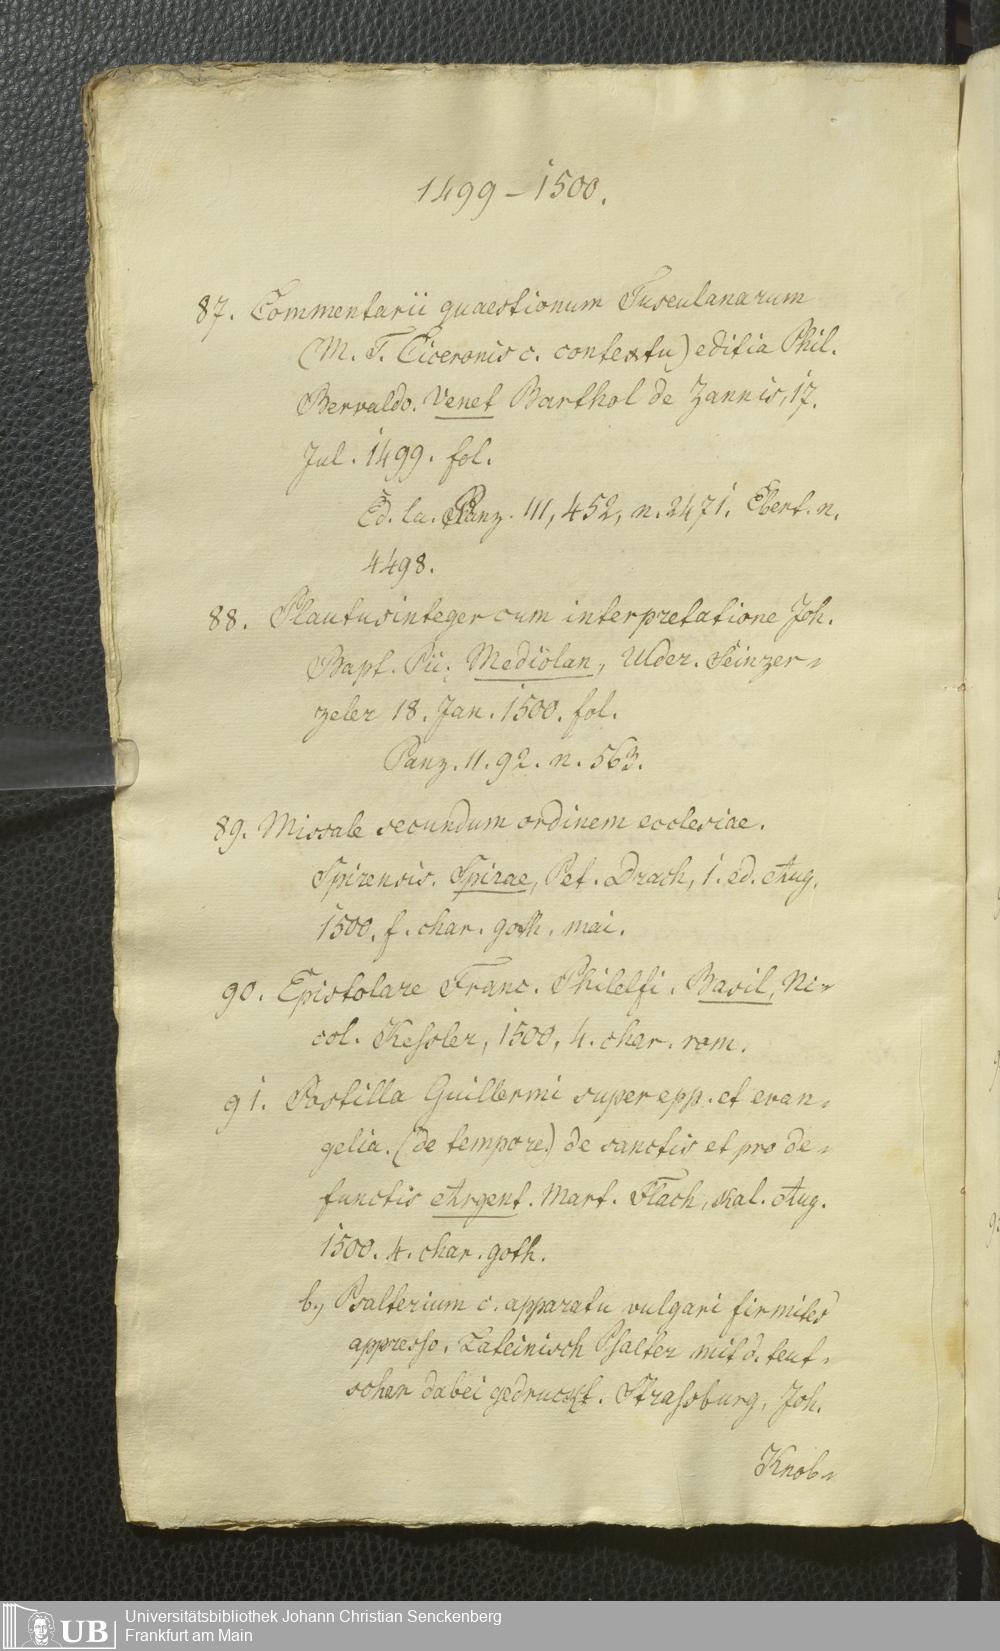 1499 – 1500.
87. Commentarii quaestionum Tusculanarum
(M. T. Ciceronis c. contextu) editia Phil.
Bervaldo. Venet Barthol de Zannis, 17.
Jul. 1499. fol.
Ed. la. Panz. III, 452, n. 2471. Ebert. n.
4498.
88. Plautus integer cum interpretatione Joh.
Bapt. Pii, Mediolan, Ulder. Seinzer-
zeler 18. Jan. 1500. fol.
Panz. II. 92. n. 563.
89. Missale secundum ordinem ecclesiae.
Spirensis. Spirae, Pet. Drach, 1. ed. Aug.
1500. f. char. goth. mai.
90. Epistolare Franc. Philelfi. Basil, Ni-
col. Kessler, 1500, 4. char. rom.
91. Postilla Guillermi super epp. et evan-
gelia. (de tempore) de sanctis et pro de-
functis Argent. Mart. Flach, Kal. Aug.
1500. 4. char. goth.
b, Psalterium c. apparatu vulgari firmiter
appresso. Lateinisch Psalter mit d. teut-
schen dabei gedruckt. Strassburg, Joh.
Knob-
UB
Universitätsbibliothek Johann Christian Senckenberg
Frankfurt am Main